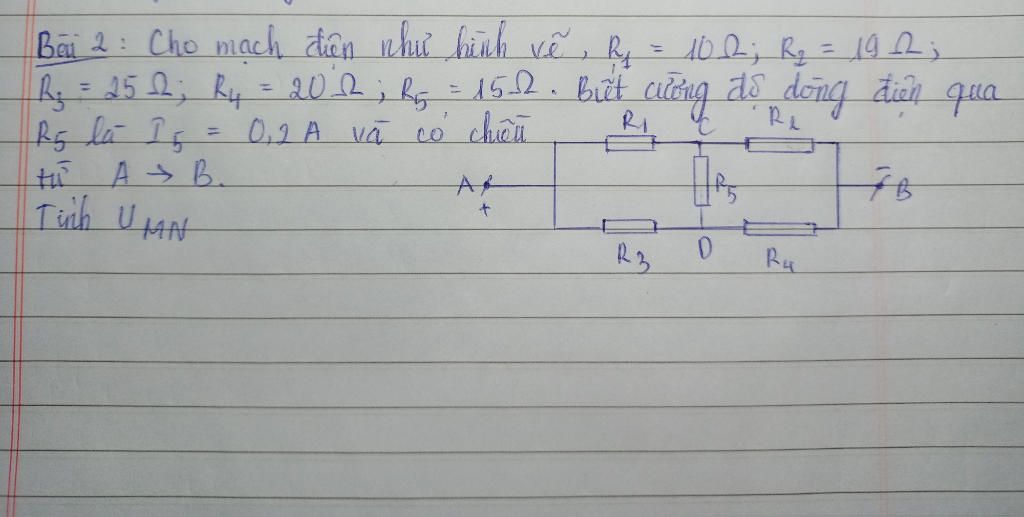 Bài 2: Cho mạch điện như hình vẽ, R1 = 10Ω; R2 = 19Ω;
R3 = 25Ω; R4 = 20Ω; R5 = 15Ω. Biết cường độ dòng điện qua
R5 là I5 = 0,2A và có chiều
từ A → B.
Tính UMN
R1 C R2
A + R5 - B
R3 D R4